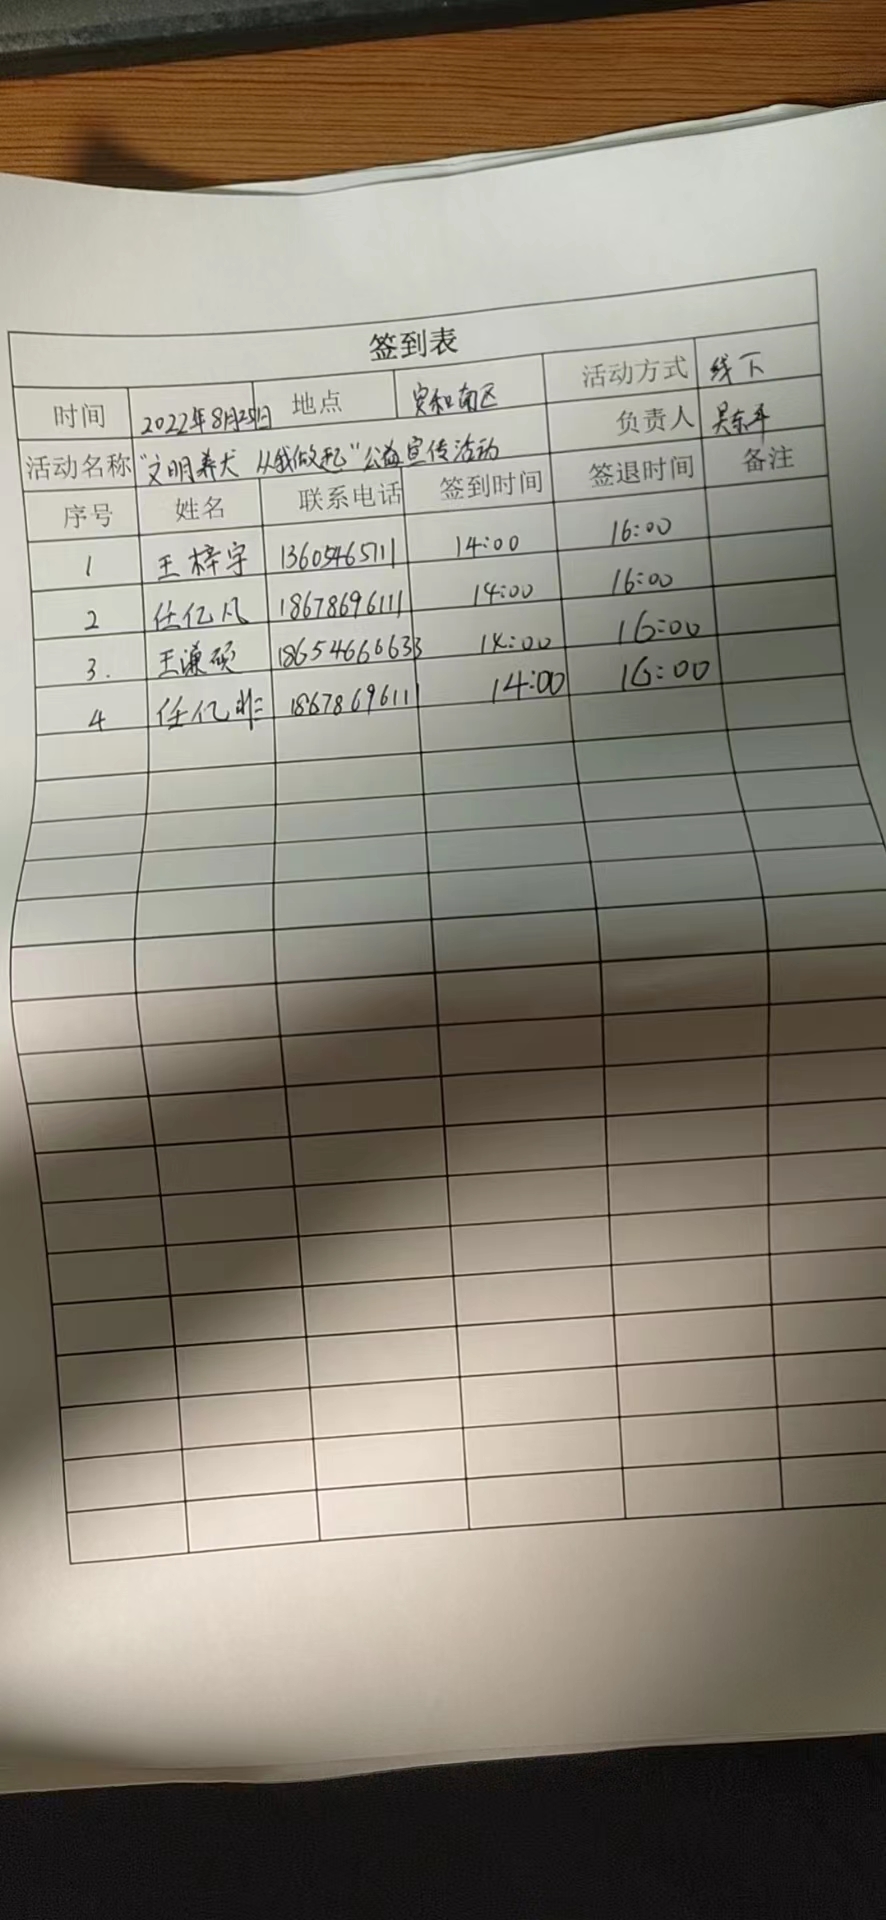 签到表
时间 2022年8月25日 地点 安和南区 活动方式 线下
活动名称 “文明养犬 从我做起”公益宣传活动 负责人 吴东平
序号 姓名 联系电话 签到时间 签退时间 备注
1 王梓宇 13605465711 14:00 16:00
2 任亿凡 18678696111 14:00 16:00
3. 王谦硕 18654666633 14:00 16:00
4 任亿非 18678696111 14:00 16:00